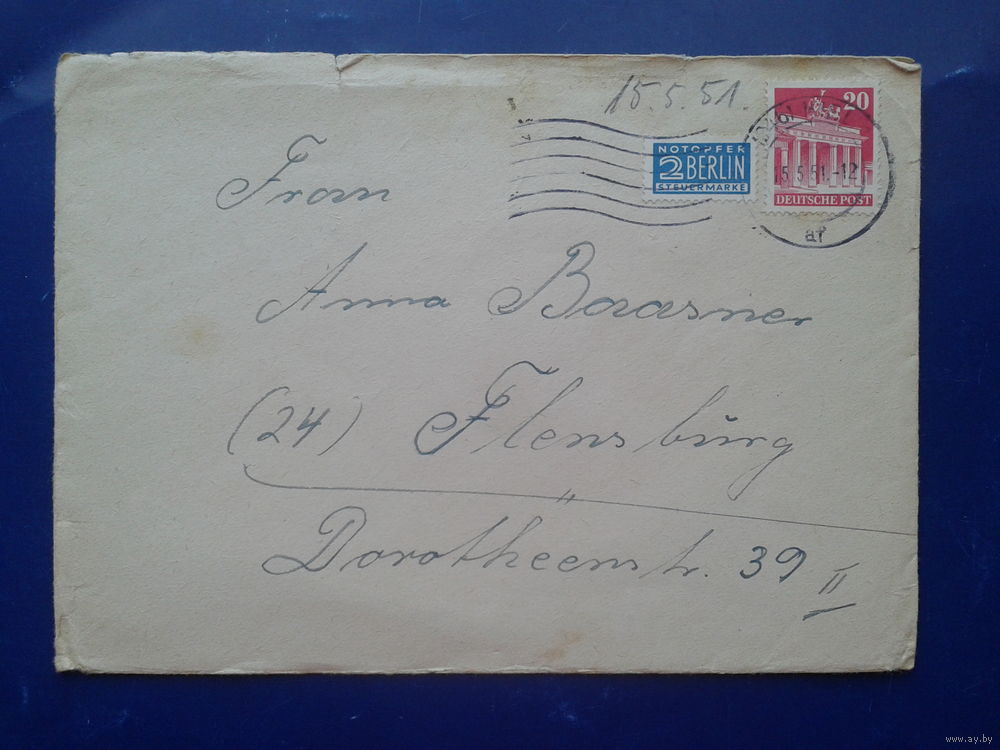 15.5.51.
20
NOTOPFER
2 BERLIN
STEUERMARKE
15.5.51.-12
DEUTSCHE POST
af
Frau
Anna Baasner
(24) Flensburg
Dorotheenstr. 39 II
www.ay.by